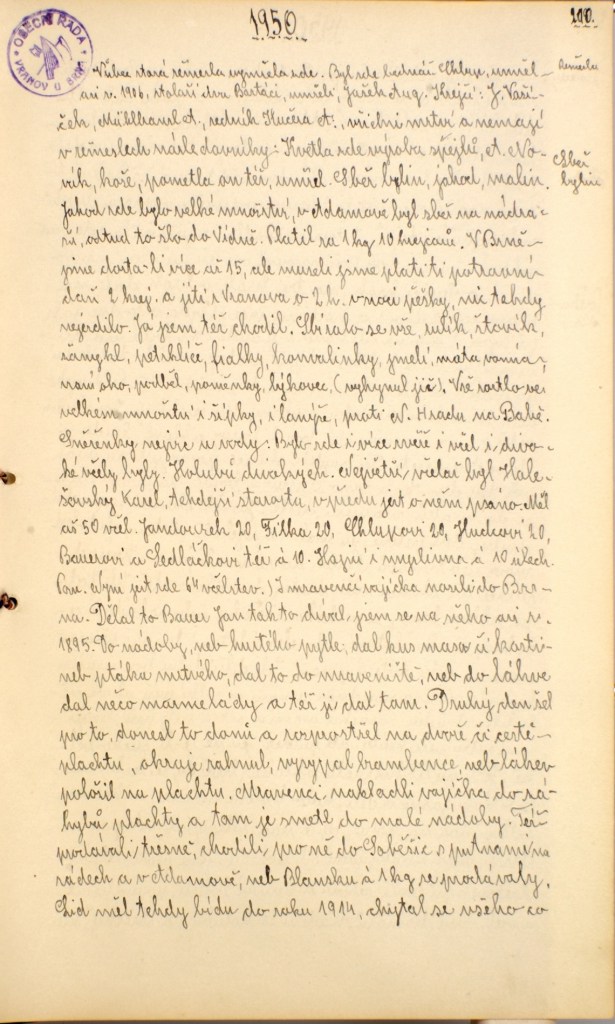 1950.
200.
OBECNÍ RADA
VRANOV U BRNA
Vůbec stará řemesla vymřela zde. Byl zde bednář Chlup, umřel
asi r. 1906, stolaři dva Bartáci, umřeli, Jašek Aug. Krejčí: J. Vaří-
ček, Mühlhansl A., zedník Kučera A., všichni mrtví a nemají
v řemeslech následovníky: Kvetla zde výroba špejlů, A. No-
vák, koše, pometla on též, umřel. Sběr bylin, jahod, malin.
Řemesla
Sběr
bylin
Jahod zde bylo velké množství, v Adamově byl sběr na nádra-
ží, odtud to šlo do Vídně. Platil za 1 kg 10 krejcarů. V Brně
jsme dostali více až 15, ale museli jsme platiti potravní
daň 2 krej. a jíti z Vranova o 2 h. v noci pěšky, nic tehdy
nejezdilo. Já jsem též chodil. Sbíralo se vše, rulík, šťovík,
šanykl, petrklíče, fialky, konvalinky, jmelí, máta vonná,
oko, podběl, poměnky, lýkovec, (vyhynul již). Vše rostlo ve
velkém množství i šípky, i lanýže, proti N. Hradu na Babě.
Sněženky nejvíc u vody: Bylo zde i více zvěře i včel i divo-
ké včely byly. Holubů divokých. Největší včelař byl Hole-
šovský Karel, tehdejší starosta, v předu jest o něm psáno. Měl
až 50 včel. Jandourek 20, Filka 20, Chlupovi 20, Hudcovi 20,
Bauerovi a Sedláčkovi též á 10. Hajní i myslivna á 10 úlech.
Pozn. Nyní jest zde 64 včelstev.) I mravenčí vajíčka nosili do Br-
na. Dělal to Bauer Jan takto díval jsem se na něho asi r.
1895. Do nádoby, neb hustého pytle, dal kus masa či kosti
neb ptáka mrtvého, dal to do mraveniště, neb do láhve
dal něco marmelády a též ji dal tam. Druhý den šel
pro to, donesl to domů a rozprostřel na dvoře či cestě
plachtu, okraje zahnul, vysypal mravence, neb láhev
položil na plachtu. Mravenci nakladli vajíčka do zá-
hybů plachty a tam je smetl do malé nádoby. Též
prodávali třešně, chodili pro ně do Soběšic s putnami na
zádech a v Adamově, neb Blansku á 1 kg se prodávaly.
Lid měl tehdy bídu do roku 1914, chytal se všeho co